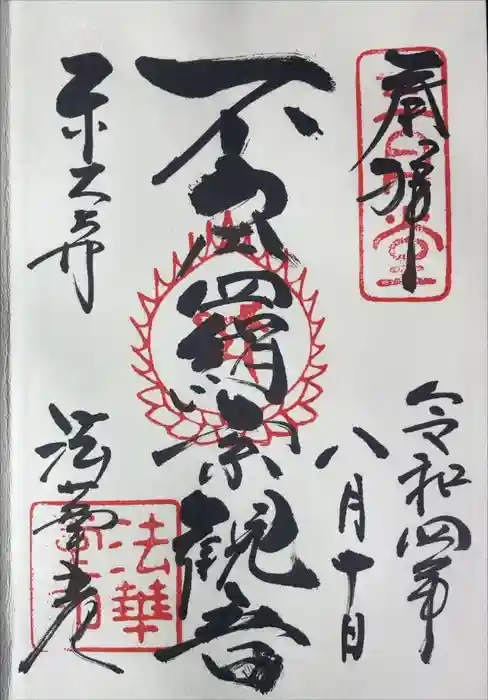 奉拝
令和四年
八月十日
不空羂索観音
東大寺
法華堂
法華